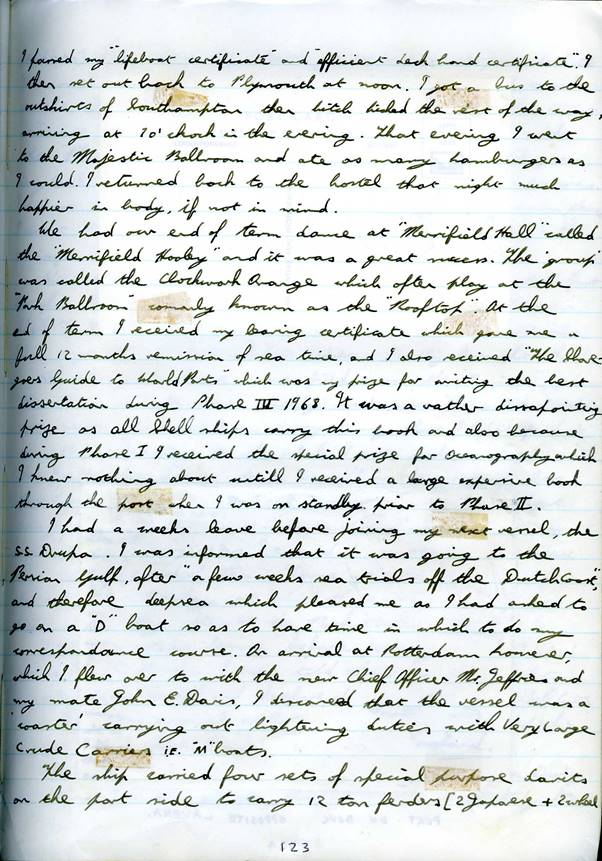 I passed my "lifeboat certificate" and "efficient deck hand certificate". I
then set out back to Plymouth at noon. I got a bus to the
outskirts of Southampton then hitch hicked the rest of the way,
arriving at 10'clock in the evening. That evening I went
to the Majestic Ballroom and ate as many hamburgers as
I could. I returned back to the hostel that night much
happier in body, if not in mind.
We had our end of term dance at "Merrifield Hall" called
the "Merrifield Hooley" and it was a great success. The group
was called the Clockwork Orange which often play at the
"Park Ballroom" comonly known as the "Rooftop". At the
end of term I received my leaving certificate which gave me a
full 12 months remission of sea time, and I also received "The Shore-
goers Guide to World Ports" which was my prize for writing the best
dissertation during Phase III 1968. It was a rather dissapointing
prize as all Shell ships carry this book and also because
during Phase I I received the special prize for Oceanography which
I knew nothing about untill I received a large expensive book
through the post when I was on standby prior to Phase II.
I had a weeks leave before joining my next vessel, the
S.S. Drupa. I was informed that it was going to the
Persian Gulf, after "a few weeks sea trials off the Dutch Coast",
and therefore deepsea which pleased me as I had asked to
go on a "D" boat so as to have time in which to do my
correspondance course. On arrival at Rotterdam however,
which I flew over to with the new Chief Officer Mr. Jeffries and
my mate John E. Davis, I discovered that the vessel was a
'coaster' carrying out lightening duties with Very Large
Crude Carriers i.E. "M" boats.
The ship carried four sets of special purpose davits
on the port side to carry 12 ton fenders [2 Japanese + 2 wheel
123